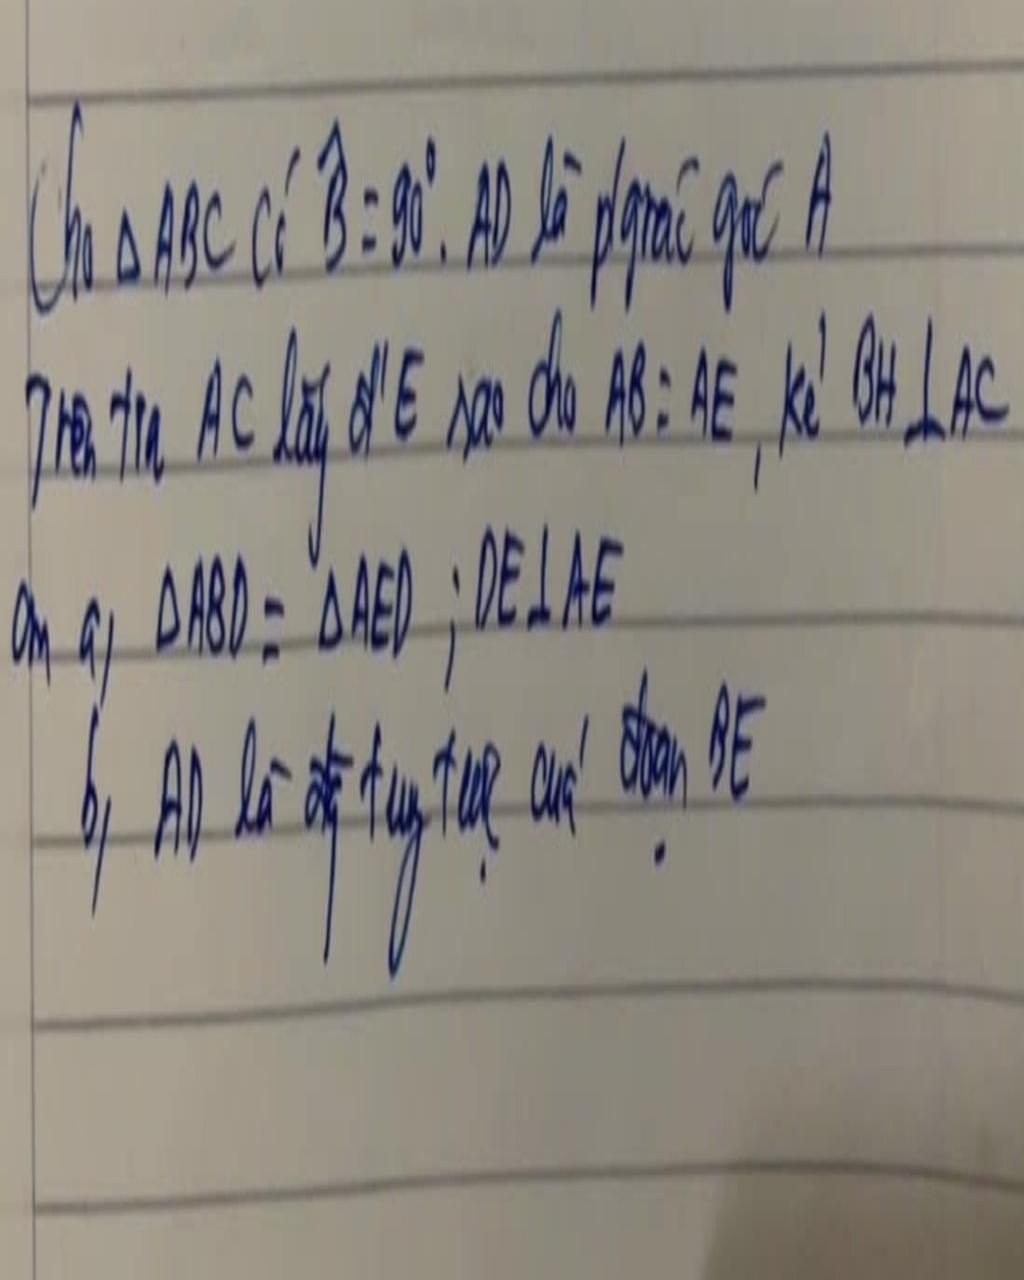 Cho △ABC có B̂ = 90°. AD là p/giác góc A
Trên tia AC lấy đ' E sao cho AB = AE, kẻ BH ⊥ AC
Cm a, △ABD = △AED ; DE ⊥ AE
b, AD là đg tung trực của đoạn BE